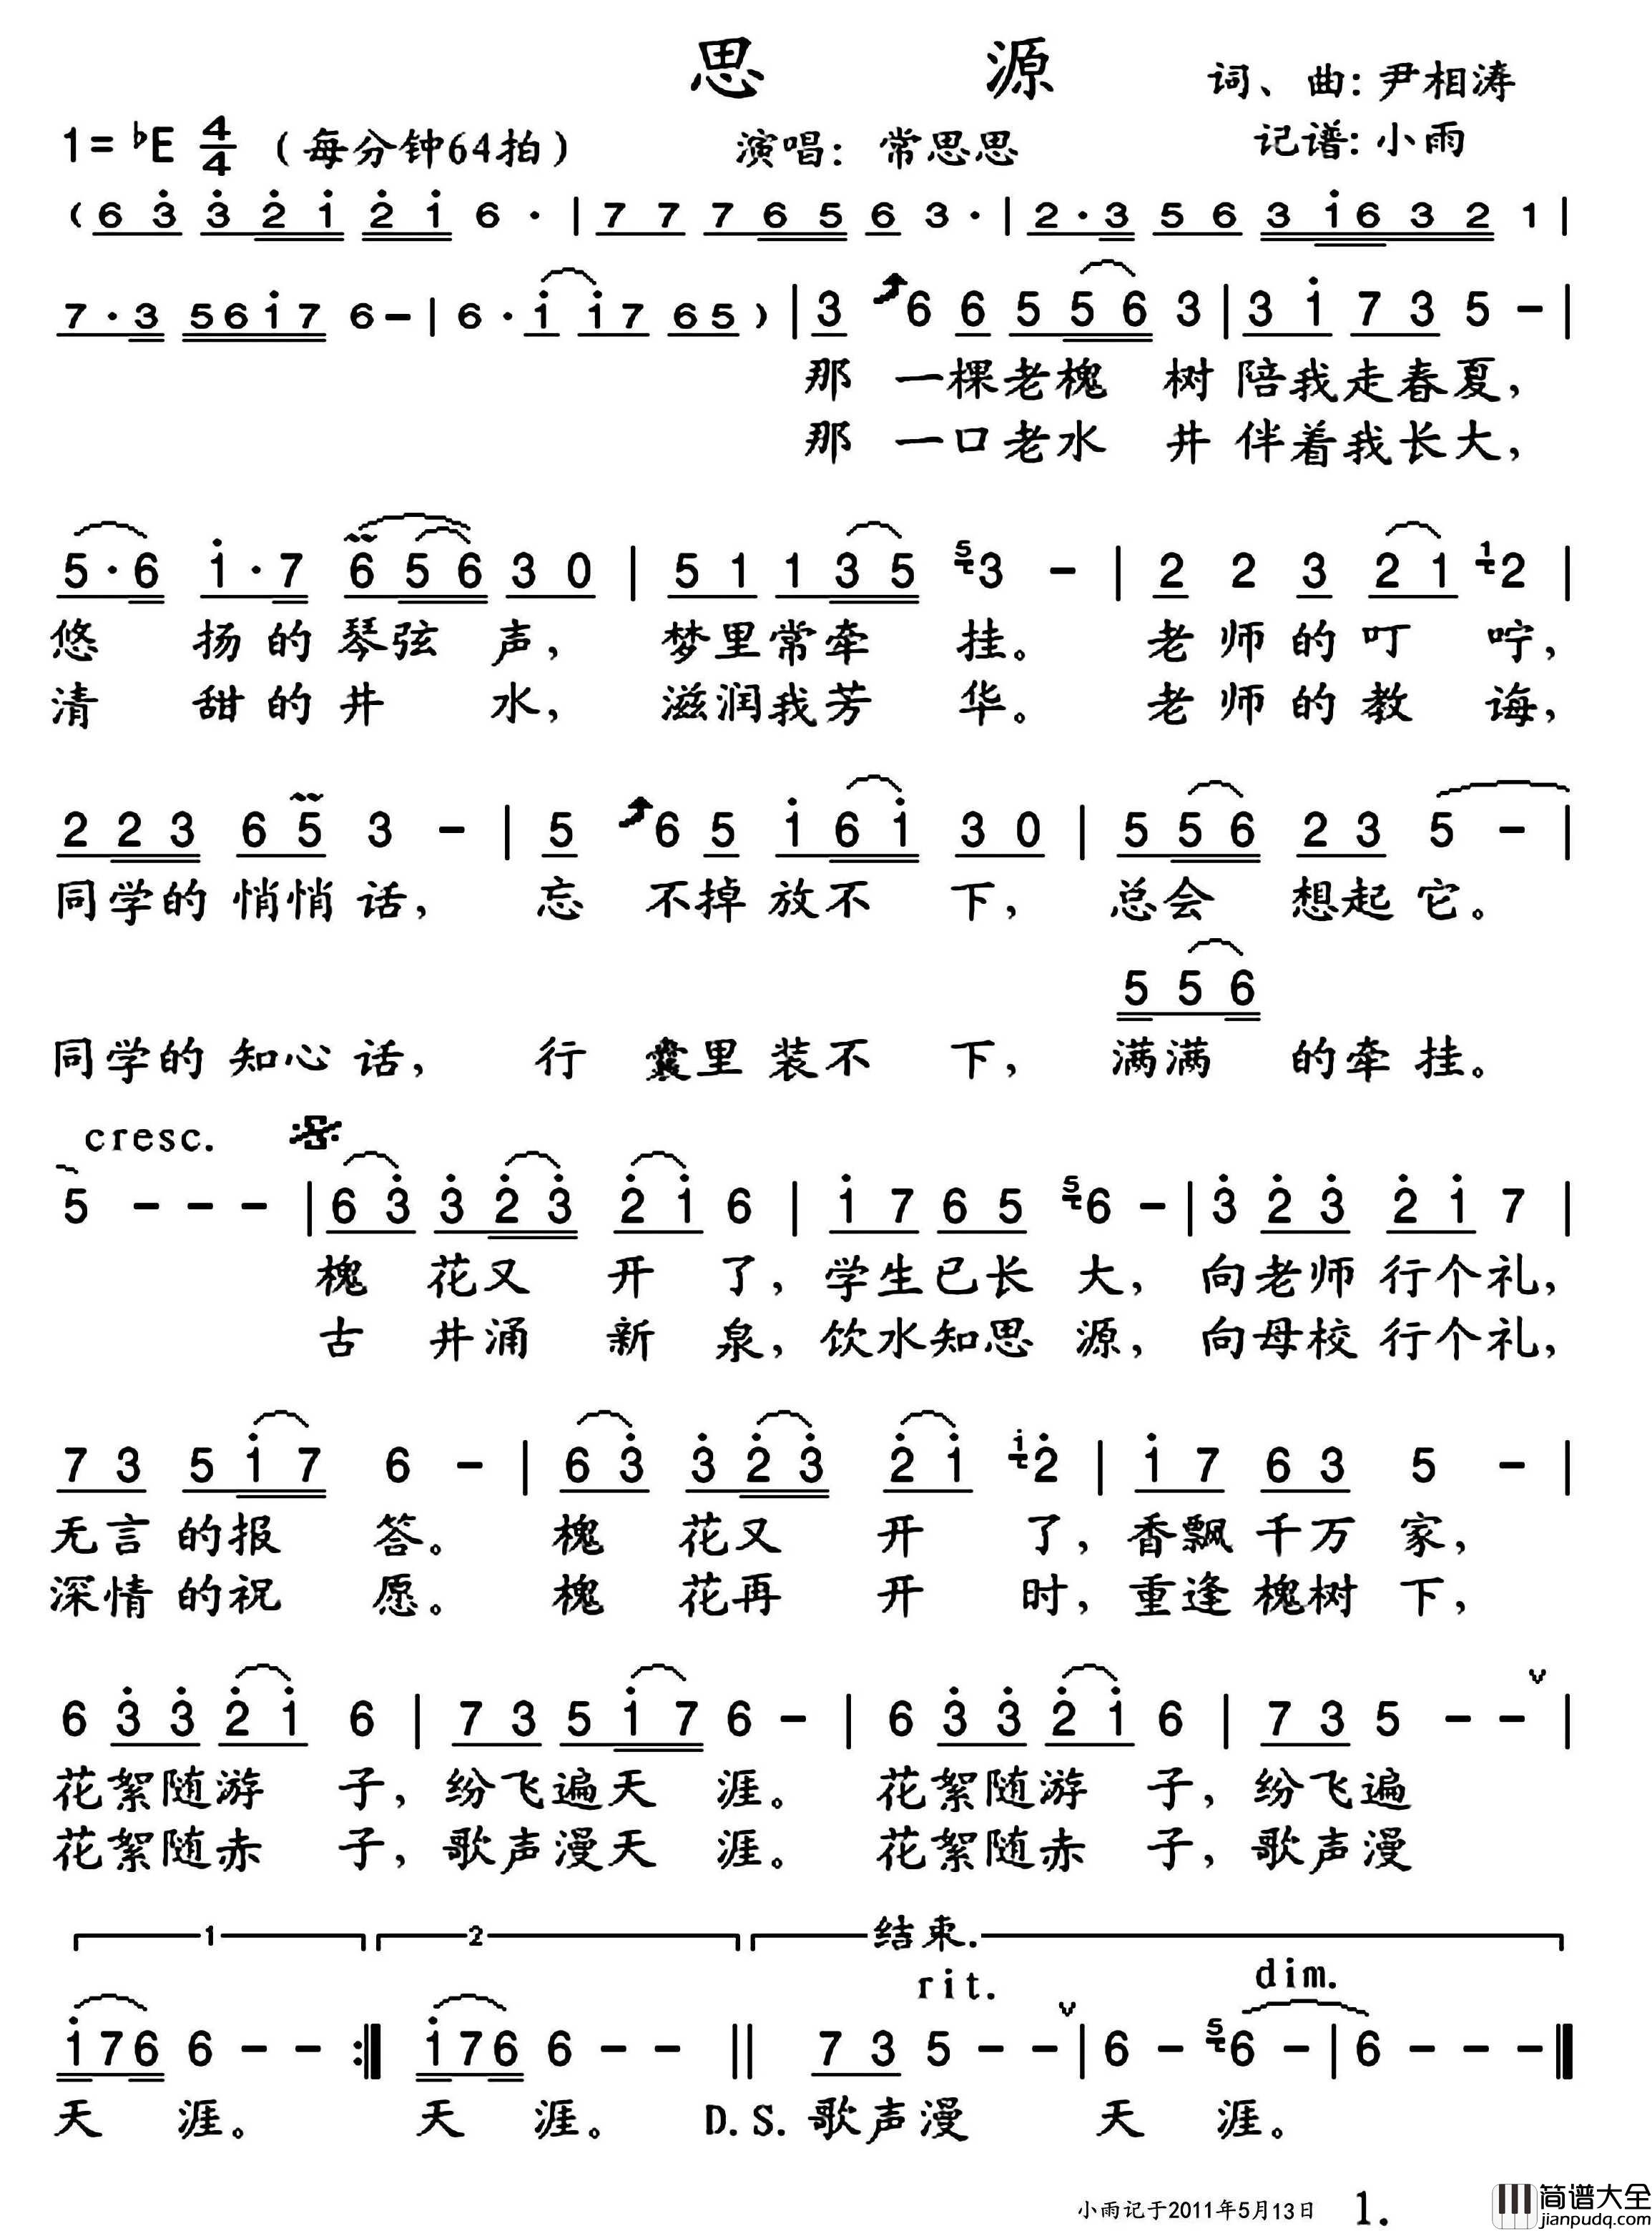 思 源
词、曲: 尹相涛
1= ♭E 4/4 (每分钟64拍)
演唱: 常思思
记谱: 小雨
( 6 3̇ 3̇ 2̇ 1̇ 2̇ 1̇ 6 · | 7 7 7 6 5 6 3 · | 2 · 3 5 6 3 1̇ 6 3 2 1 |
7 · 3 5 6 1̇ 7 6 – | 6 · 1̇ 1̇ 7 6 5 ) | 3 6 6 5 5 6 3 | 3 1̇ 7 3 5 – |
那 一棵老槐 树 陪我走春夏,
那 一口老水 井 伴着我长大,
5 · 6 1̇ · 7 6 5 6 3 0 | 5 1 1 3 5 5 3 – | 2 2 3 2 1 1 2 |
悠 扬的琴弦 声, 梦里常牵 挂。 老师的叮 咛,
清 甜的井 水, 滋润我芳 华。 老师的教 诲,
2 2 3 6 5 3 – | 5 6 5 1̇ 6 1̇ 3 0 | 5 5 6 2 3 5 – |
同学的 悄悄话, 忘 不掉放不 下, 总会 想起它。
5 5 6
同学的 知心话, 行 囊里装不 下, 满满 的牵挂。
cresc. 𝄋
5 – – – | 6 3̇ 3̇ 2̇ 3̇ 2̇ 1̇ 6 | 1̇ 7 6 5 5 6 – | 3̇ 2̇ 3̇ 2̇ 1̇ 7 |
槐 花又 开 了, 学生已长 大, 向老师 行个礼,
古 井涌 新 泉, 饮水知思 源, 向母校 行个礼,
7 3 5 1̇ 7 6 – | 6 3̇ 3̇ 2̇ 3̇ 2̇ 1̇ 1̇ 2̇ | 1̇ 7 6 3 5 – |
无言 的报 答。 槐 花又 开 了, 香飘 千万 家,
深情 的祝 愿。 槐 花再 开 时, 重逢 槐树 下,
6 3̇ 3̇ 2̇ 1̇ 6 | 7 3 5 1̇ 7 6 – | 6 3̇ 3̇ 2̇ 1̇ 6 | 7 3 5 – – ∨ |
花絮随游 子, 纷飞遍天 涯。 花絮随游 子, 纷飞遍
花絮随赤 子, 歌声漫天 涯。 花絮随赤 子, 歌声漫
1 2 结束.
rit. dim.
1̇ 7 6 6 – – :‖ 1̇ 7 6 6 – – ‖ 7 3 5 – – ∨ | 6 – 5 6 – | 6 – – – ‖
天 涯。 天 涯。 D.S. 歌声漫 天 涯。
小雨记于2011年5月13日 1.
简谱大全
jianpudq.com